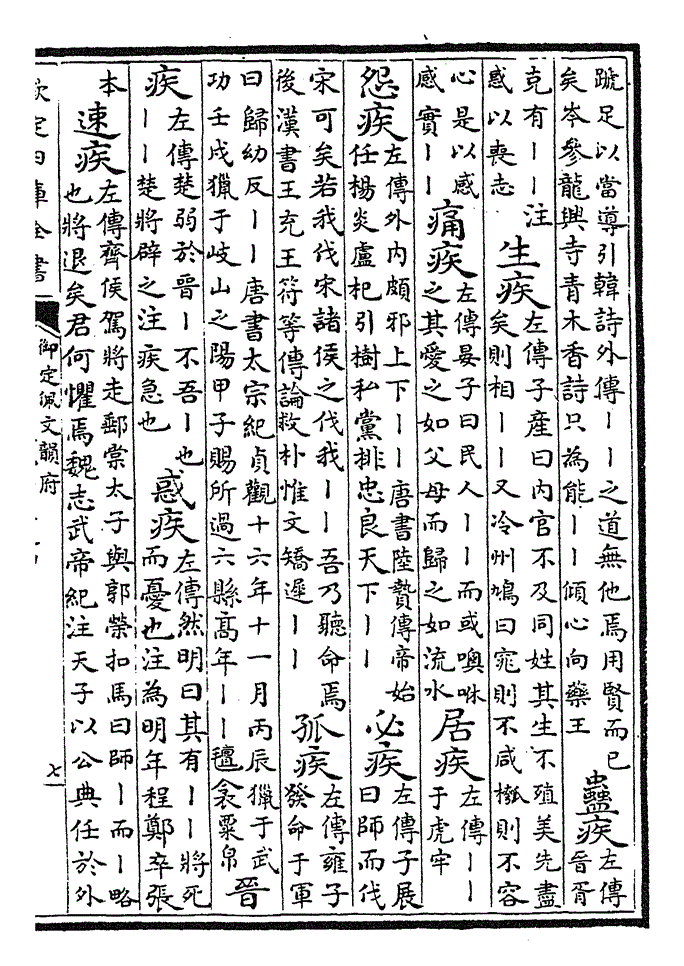 足以當導引韓詩外傳丨丨之道無他焉用賢而已
矣岑參龍興寺青木香詩只為能丨丨傾心向藥王
蠱疾
左傳
晉胥
克有丨丨注
惑以喪志
生疾
左傳子產曰內官不及同姓其生不殖美先盡
矣則相丨丨又泠州鳩曰窕則不咸槬則不容
心是以感
感實丨丨
痛疾
左傳晏子曰民人丨丨而或噢咻
之其愛之如父母而歸之如流水
居疾
左傳丨丨
于虎牢
怨疾
左傳外内頗邪上下丨丨唐書陸贄傳帝始
任楊炎盧杞引樹私黨排忠良天下丨丨
必疾
左傳子展
曰師而伐
宋可矣若我伐宋諸侯之伐我丨丨吾乃聽命焉
後漢書王充王符等傳論救朴惟文矯遲丨丨
孤疾
左傳雍子
發命于軍
曰歸幼反丨丨唐書太宗紀貞觀十六年十一月丙辰獵于武
功壬戌獵于岐山之陽甲子賜所過六縣高年丨丨氊衾粟帛
晉
疾
左傳楚弱於晉丨不吾丨也
丨丨楚將辟之注疾急也
惑疾
左傳然明曰其有丨丨將死
而憂也注為明年程鄭卒張
本
速疾
左傳齊侯駕將走郵棠太子與郭榮扣馬曰師丨而丨略
也將退矣君何懼焉魏志武帝紀注天子以公典任於外
欽定四庫全書
御定佩文韻府
七